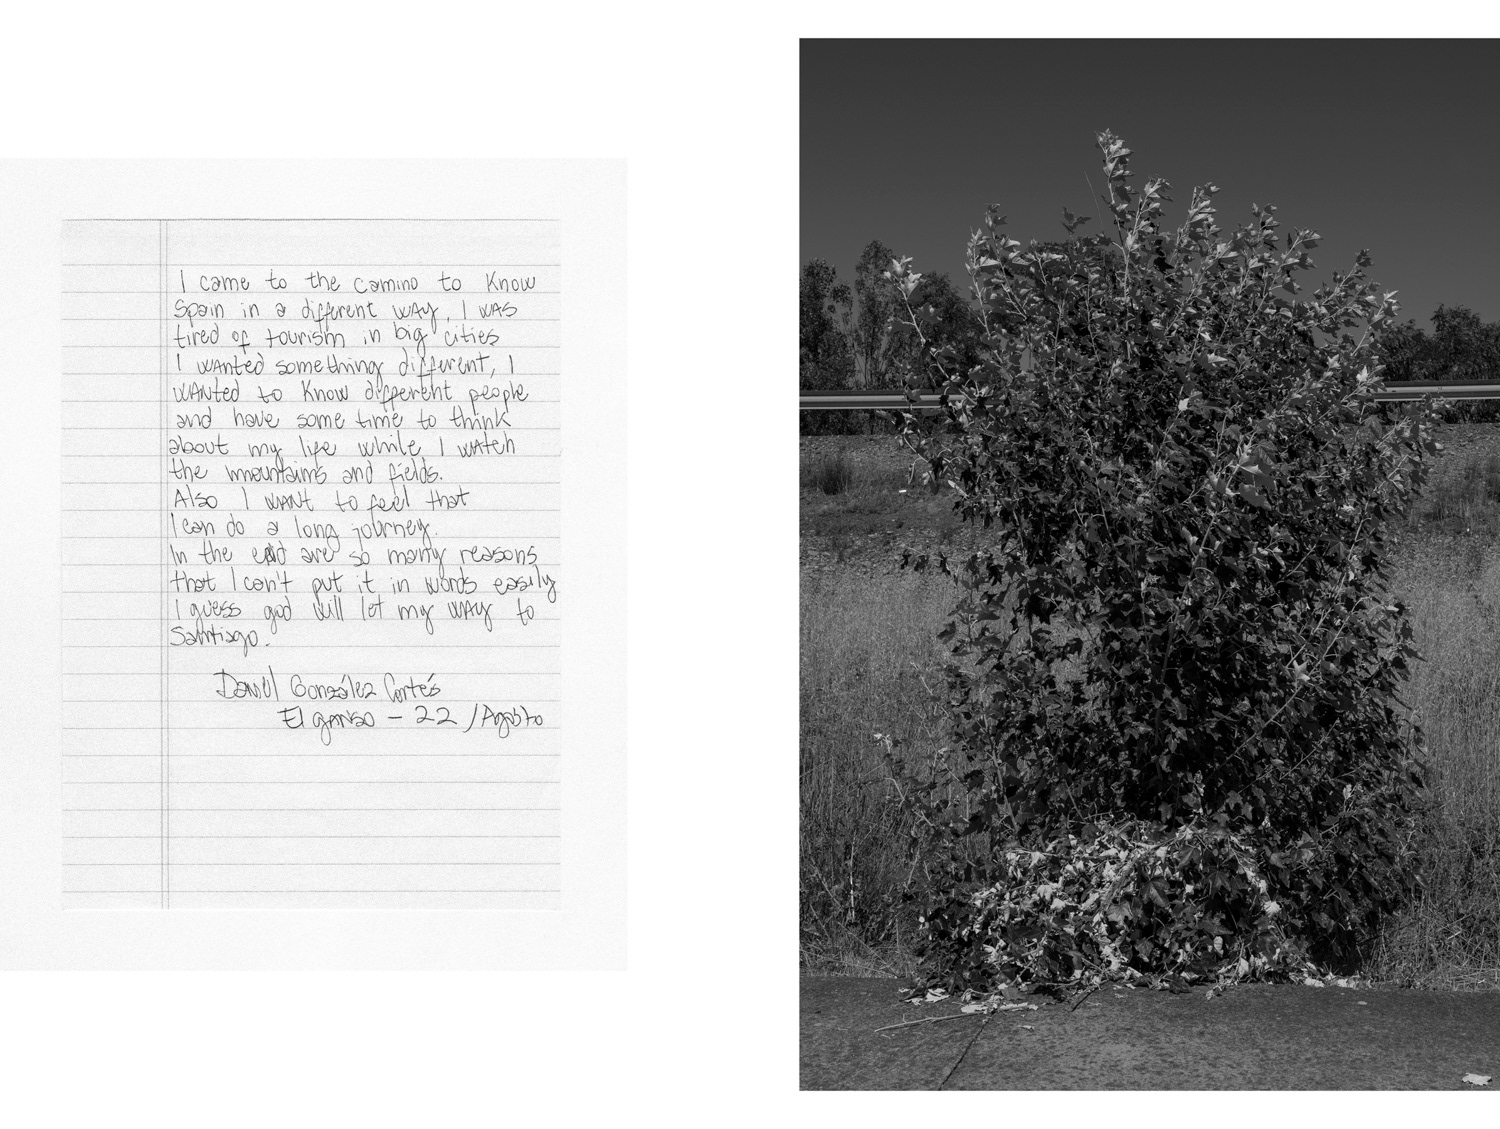 I came to the camino to Know
Spain in a different way, I was
tired of tourism in big cities
I wanted something different, I
wanted to Know different people
and have some time to think
about my life while I watch
the mountains and fields.
Also I want to feel that
I can do a long journey.
In the end are so many reasons
that I can't put it in words easily
I guess god will let my way to
Santiago.
Daniel González Cortés
El ganso - 22 /Agosto